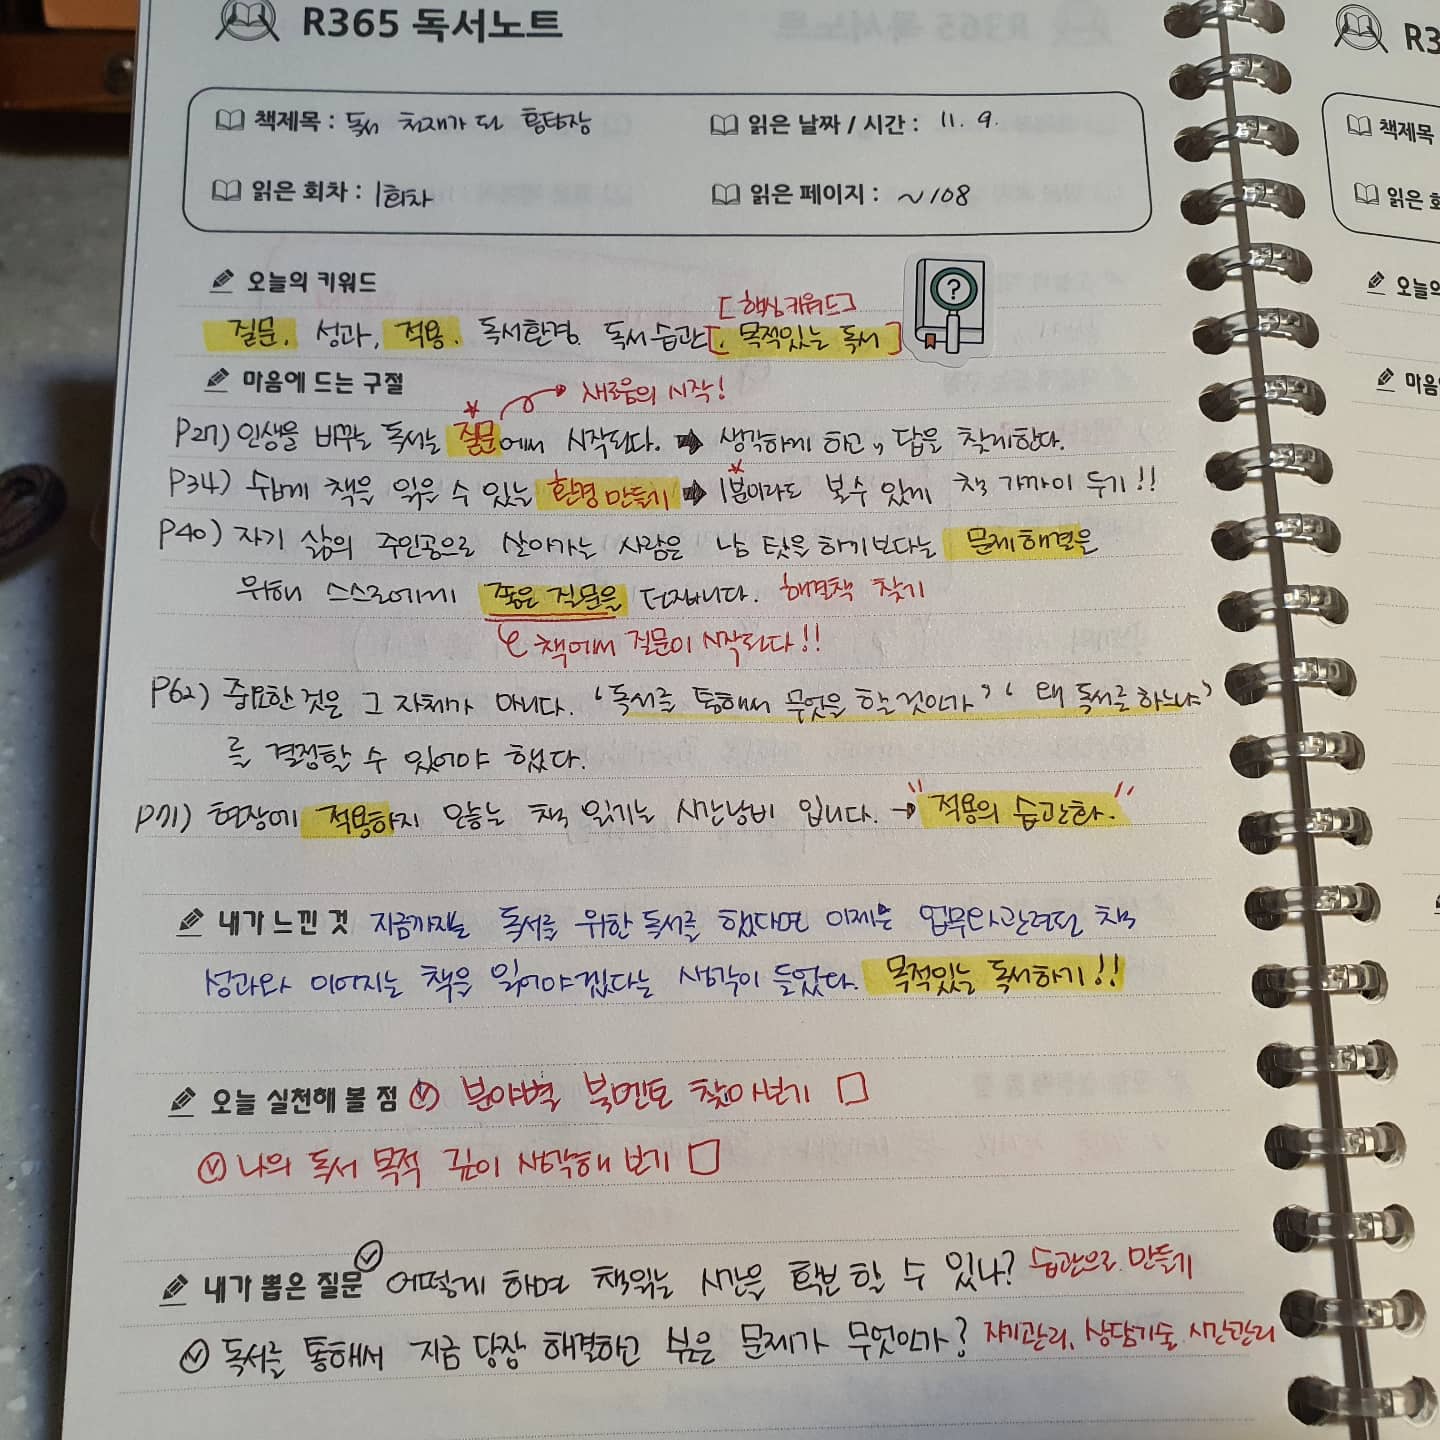 R365 독서노트
R3
책제목 : 독서 천재가 된 홍팀장
읽은 날짜 / 시간 : 11. 9.
책제목
읽은 회차 : 1회차
읽은 페이지 : ~108
읽은 회
오늘의 키워드
[핵심키워드]
?
오늘의
질문, 성과, 적용, 독서환경, 독서습관[, 목적있는 독서]
마음에 드는 구절
새로움의 시작!
마음에
P27) 인생을 바꾸는 독서는 질문에서 시작된다. ➡ 생각하게 하고, 답을 찾게한다.
P34) 쉽게 책을 읽을 수 있는 환경 만들기 ➡ 1분이라도 볼수 있게 책 가까이 두기!!
P40) 자기 삶의 주인공으로 살아가는 사람은 남 탓을 하기보다는 문제해결을
위해 스스로에게 좋은 질문을 던집니다. 해결책 찾기
책에서 질문이 시작된다!!
P62) 중요한 것은 그 자체가 아니다. '독서를 통해서 무엇을 할 것인가' '왜 독서를 하느냐'
를 결정할 수 있어야 했다.
P71) 현장에 적용하지 않는 책 읽기는 시간낭비 입니다. → "적용의 습관화."
내가 느낀 것 지금까지는 독서를 위한 독서를 했다면 이제는 업무와 관련된 책
성과와 이어지는 책을 읽어야겠다는 생각이 들었다. 목적있는 독서하기!!
오늘 실천해 볼 점 분야별 북멘토 찾아보기 □
나의 독서 목적 깊이 생각해 보기 □
내가 뽑은 질문 어떻게 하면 책읽는 시간을 확보 할 수 있나? 습관으로 만들기
독서를 통해서 지금 당장 해결하고 싶은 문제가 무엇인가? 자기관리, 상담기술, 시간관리